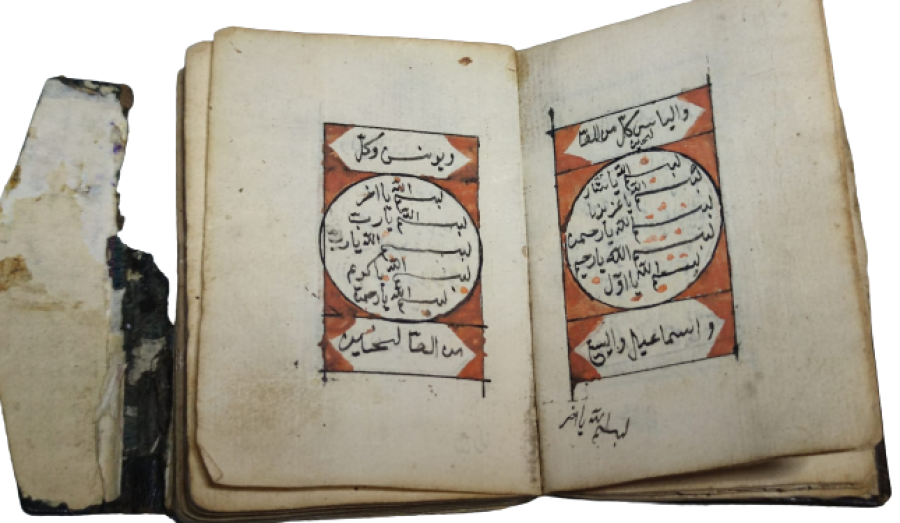 والياس كل من الصا
لحين
بسم الله يا
بسم الله يا عزيز يا
بسم الله يا رحمن
بسم الله يا رحيم
بسم الله يا اول
واسماعيل واليسع
بسم الله يا اخر
ويونس وكل
بسم الله يا اخر
بسم الله يا رب
بسم الله يا رب
بسم الله يا كريم
بسم الله يا رحمن
من الصالحين